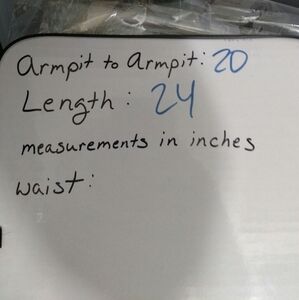 armpit to armpit: 20
Length: 24
measurements in inches
waist: